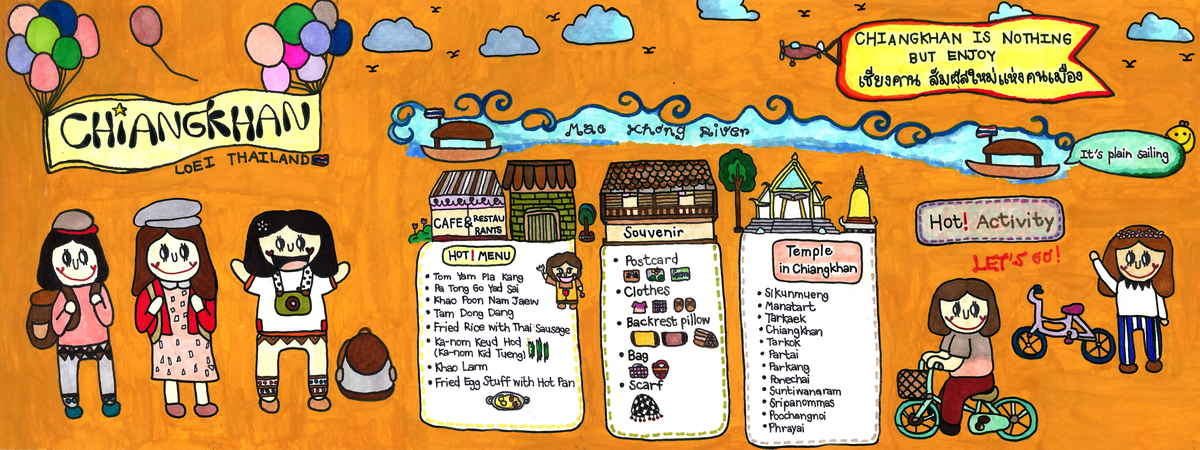 CHIANGKHAN
LOEI THAILAND
CHIANGKHAN IS NOTHING
BUT ENJOY
เชียงคาน สัมผัสใหม่แห่งคนเมือง
Mae Khong River
It's plain sailing
CAFE & RESTAU
RANTS
HOT! MENU
Tom Yam Pla Kang
Pa Tong Go Yad Sai
Khao Poon Nam Jaew
Tam Dong Dang
Fried Rice with Thai Sausage
Ka-nom Keud Hod
(Ka-nom Kid Tueng)
Khao Larm
Fried Egg Stuff with Hot Pan
Souvenir
Postcard
Clothes
Backrest pillow
Bag
Scarf
Temple
in Chiangkhan
Sikunmueng
Manatart
Tarkaek
Chiangkhan
Tarkok
Partai
Parkang
Ponechai
Suntiwanaram
Sripanommas
Poochangnoi
Phrayai
Hot! Activity
LET'S GO!